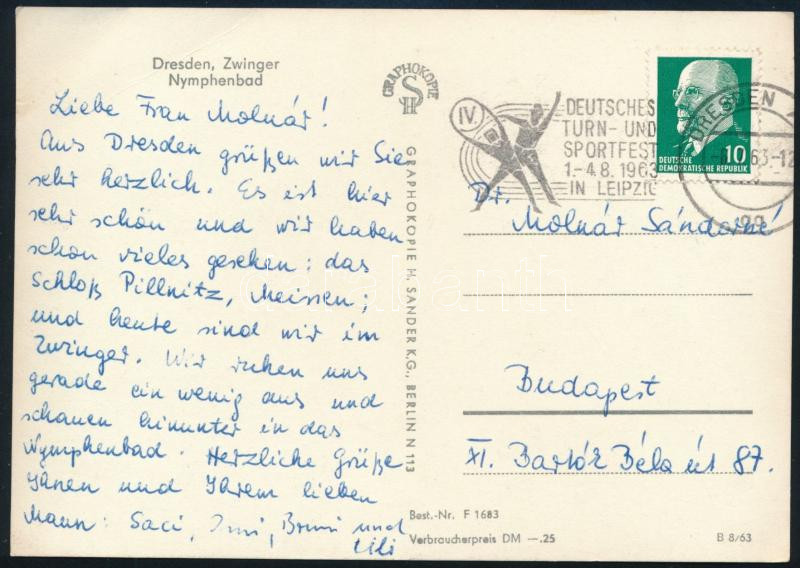 Dresden, Zwinger
Nymphenbad
Liebe Frau Molnár!
Aus Dresden grüßen wir Sie
sehr herzlich. Es ist hier
sehr schön und wir haben
schon vieles gesehen: das
Schloß Pillnitz, Meissen;
und heute sind wir im
Zwinger. Wir ruhen uns
gerade ein wenig aus und
schauen hinunter in das
Nymphenbad. Herzliche Grüße
Ihnen und Ihrem lieben
Mann: Saci, Imi, und
Lili
GRAPHOKOPIE
HS
GRAPHOKOPIE H. SANDER K.G., BERLIN N 113
IV.
DEUTSCHES
TURN- UND
SPORTFEST
1.-4.8.1963
IN LEIPZIG
DRESDEN
10
DEUTSCHE
DEMOKRATISCHE REPUBLIK
Dr.
Molnár Sándorné
Budapest
XI. Bartók Béla út 87.
Best.-Nr. F 1683
Verbraucherpreis DM —.25
B 8/63